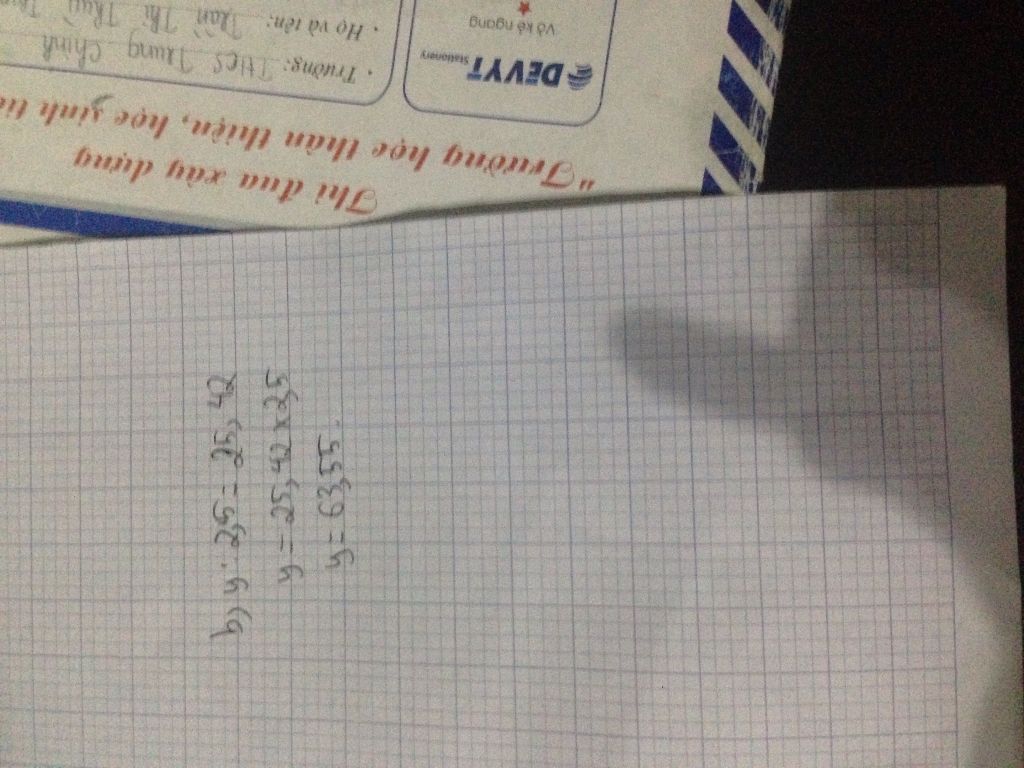 b, y : 2,5 = 25,42
y = 25,42 x 2,5
y = 63,55.
"Trường học thân thiện, học sinh
Thi đua xây dựng
DEVYT
Stationery
Vở kẻ ngang
• Trường: THCS Trung Chính
• Họ và tên: Trần Thị Thuỳ